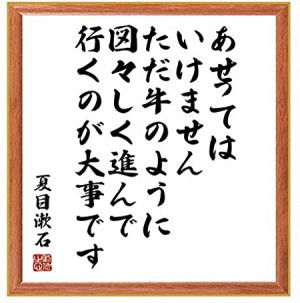 あせっては
いけません
ただ牛のように
図々しく進んで
行くのが大事です
夏目漱石